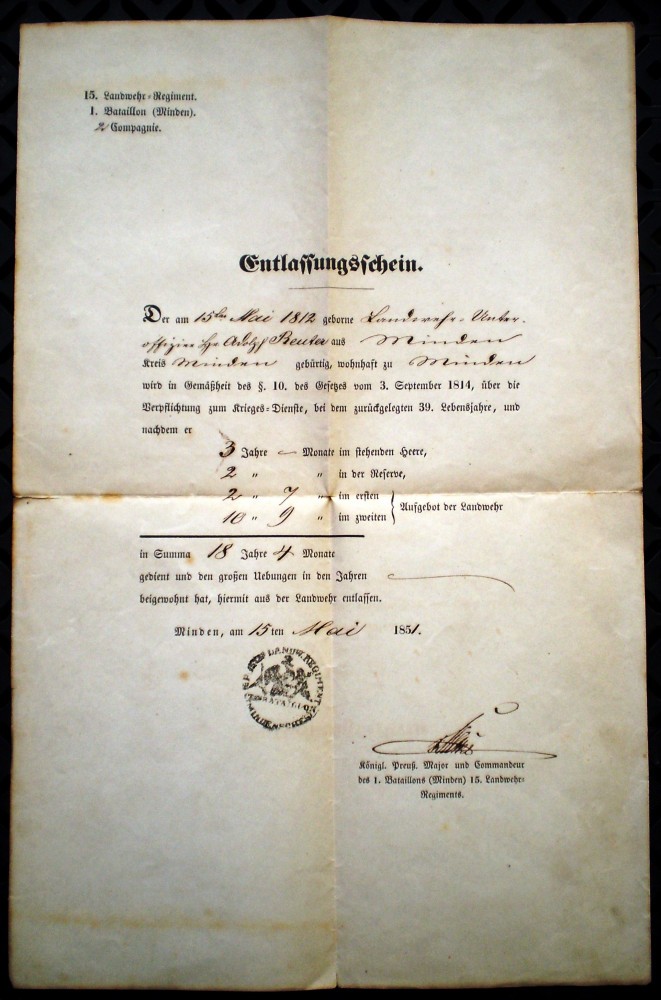 15. Landwehr-Regiment.
1. Bataillon (Minden).
2 Compagnie.
Entlassungsschein.
Der am 15ten Mai 1812 geborne Landwehr-Unter-
offizier Adolph Reuter aus Minden
Kreis Minden gebürtig, wohnhaft zu Minden
wird in Gemäßheit des §. 10. des Gesetzes vom 3. September 1814, über die
Verpflichtung zum Krieges-Dienste, bei dem zurückgelegten 39. Lebensjahre, und
nachdem er
3 Jahre — Monate im stehenden Heere,
2 " " in der Reserve,
2 " 7 " im ersten
10 " 9 " im zweiten } Aufgebot der Landwehr
in Summa 18 Jahre 4 Monate
gedient und den großen Uebungen in den Jahren —
beigewohnt hat, hiermit aus der Landwehr entlassen.
Minden, am 15ten Mai 1851.
LANDW. REGIMENT
BATAILLON
Königl. Preuß. Major und Commandeur
des 1. Bataillons (Minden) 15. Landwehr-
Regiments.